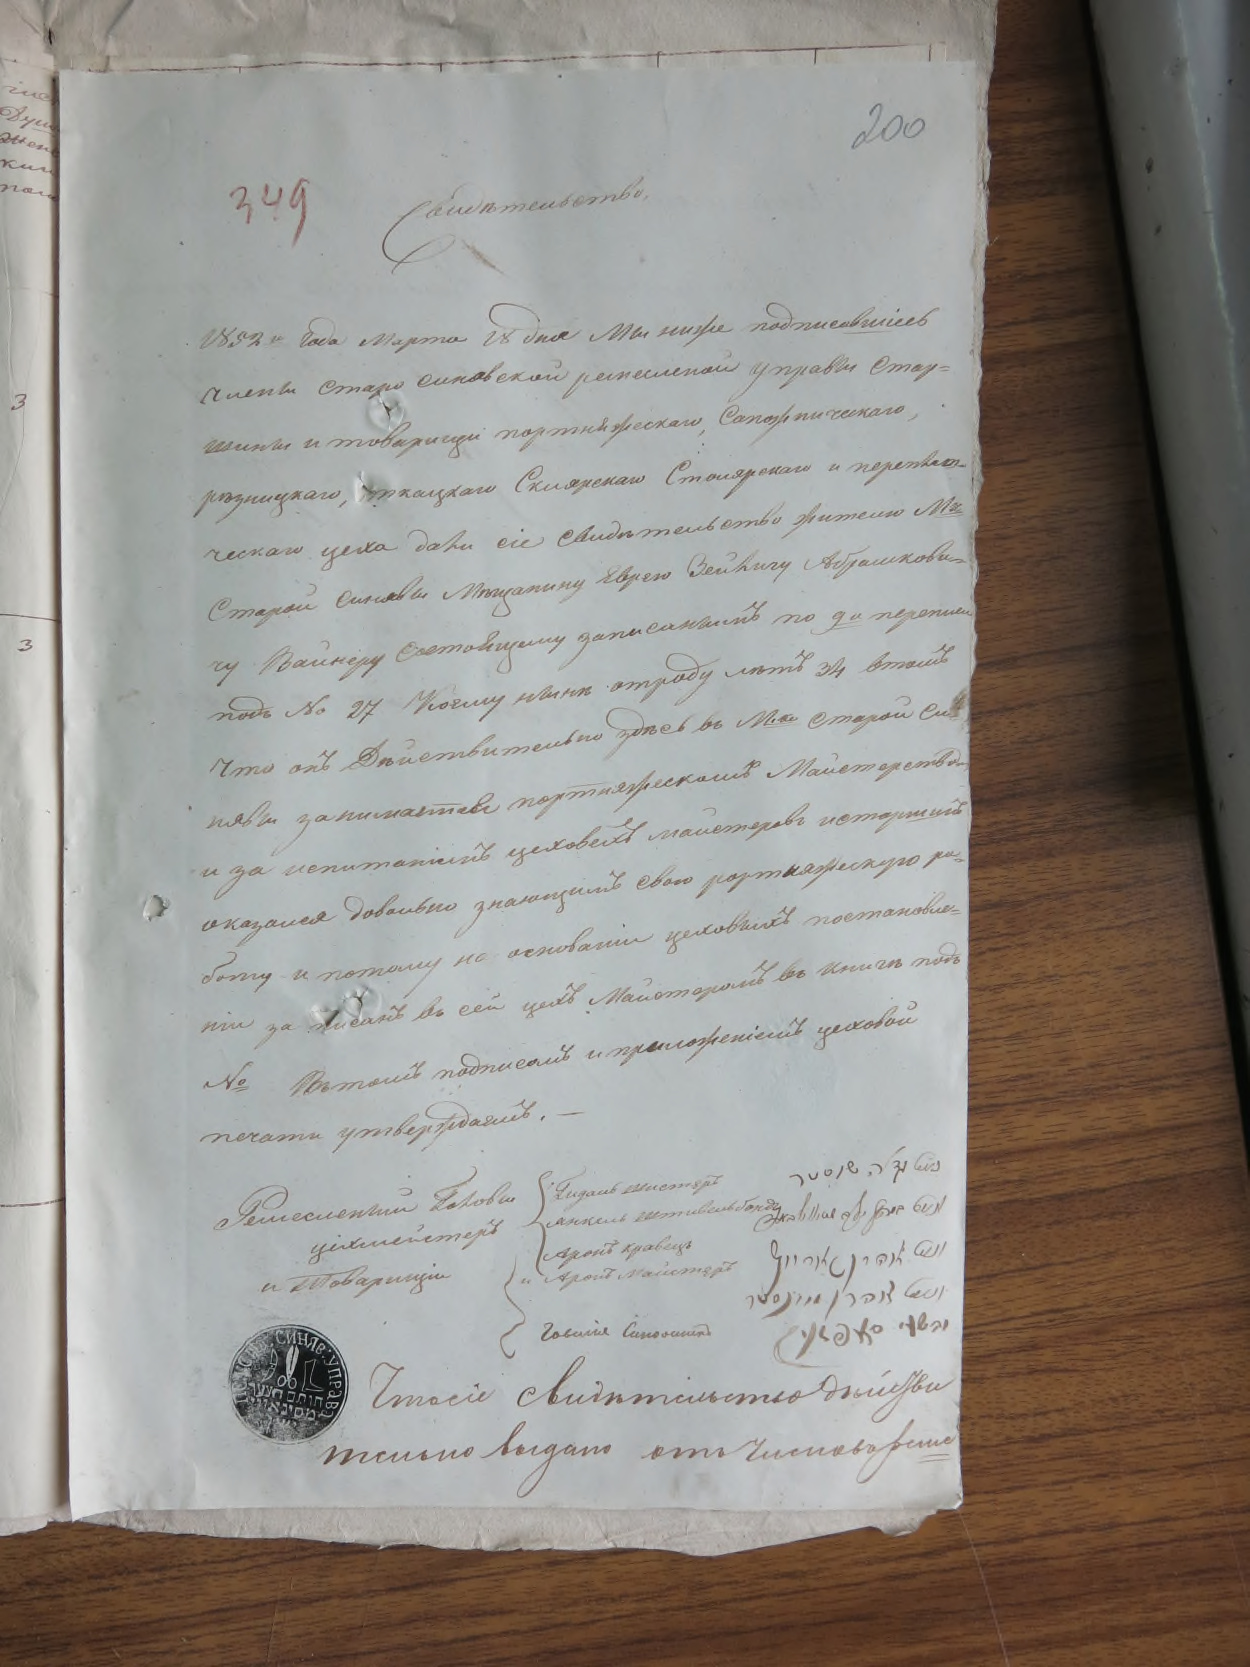 200
349
Свидѣтельство.
1852го Года Марта 18 дня Мы ниже подписавшіесь
члены Старо синявской ремесленой управы Стар=
шины и товарищи портняжескаго, Сапожническаго,
рѣзницкаго, ткацкаго Склярскаго Столярскаго и
ческаго цеха дали сіе свидѣтельство жителю Мка
Старой Синявы Мѣщанину Еврею Зейличу Абрашкови=
чу Вайнеру состоящему записаннымъ по 9й переписи
подъ № 27 Коему нынѣ отроду лѣтъ 34 втомъ
Что онъ Дѣйствительно здѣсь въ Мкѣ Старой Си=
нявы занимается портняжескомъ Майстерствомъ
и за испитаніемъ цеховыхъ майстеровъ
оказался довольно знающимъ свою портняжескую ра=
боту и потому на основаніи цеховыхъ постановле=
ніи за писанъ въ сей цехъ Майстеромъ въ книгѣ подъ
№ Вътомъ подписомъ и приложеніемъ цеховой
печати утверждаемъ. —
Ремесленный Головы
цехмейстеръ
и Товарищи
Шустеръ
Янкель
Аронъ кравецъ
и Аронъ Майстеръ
שוסטער
אהרן
אהרן
СИНЯВ: УПРАВА
חותם
Что сіе свидѣтельство дѣйстви
тельно выдано отъ